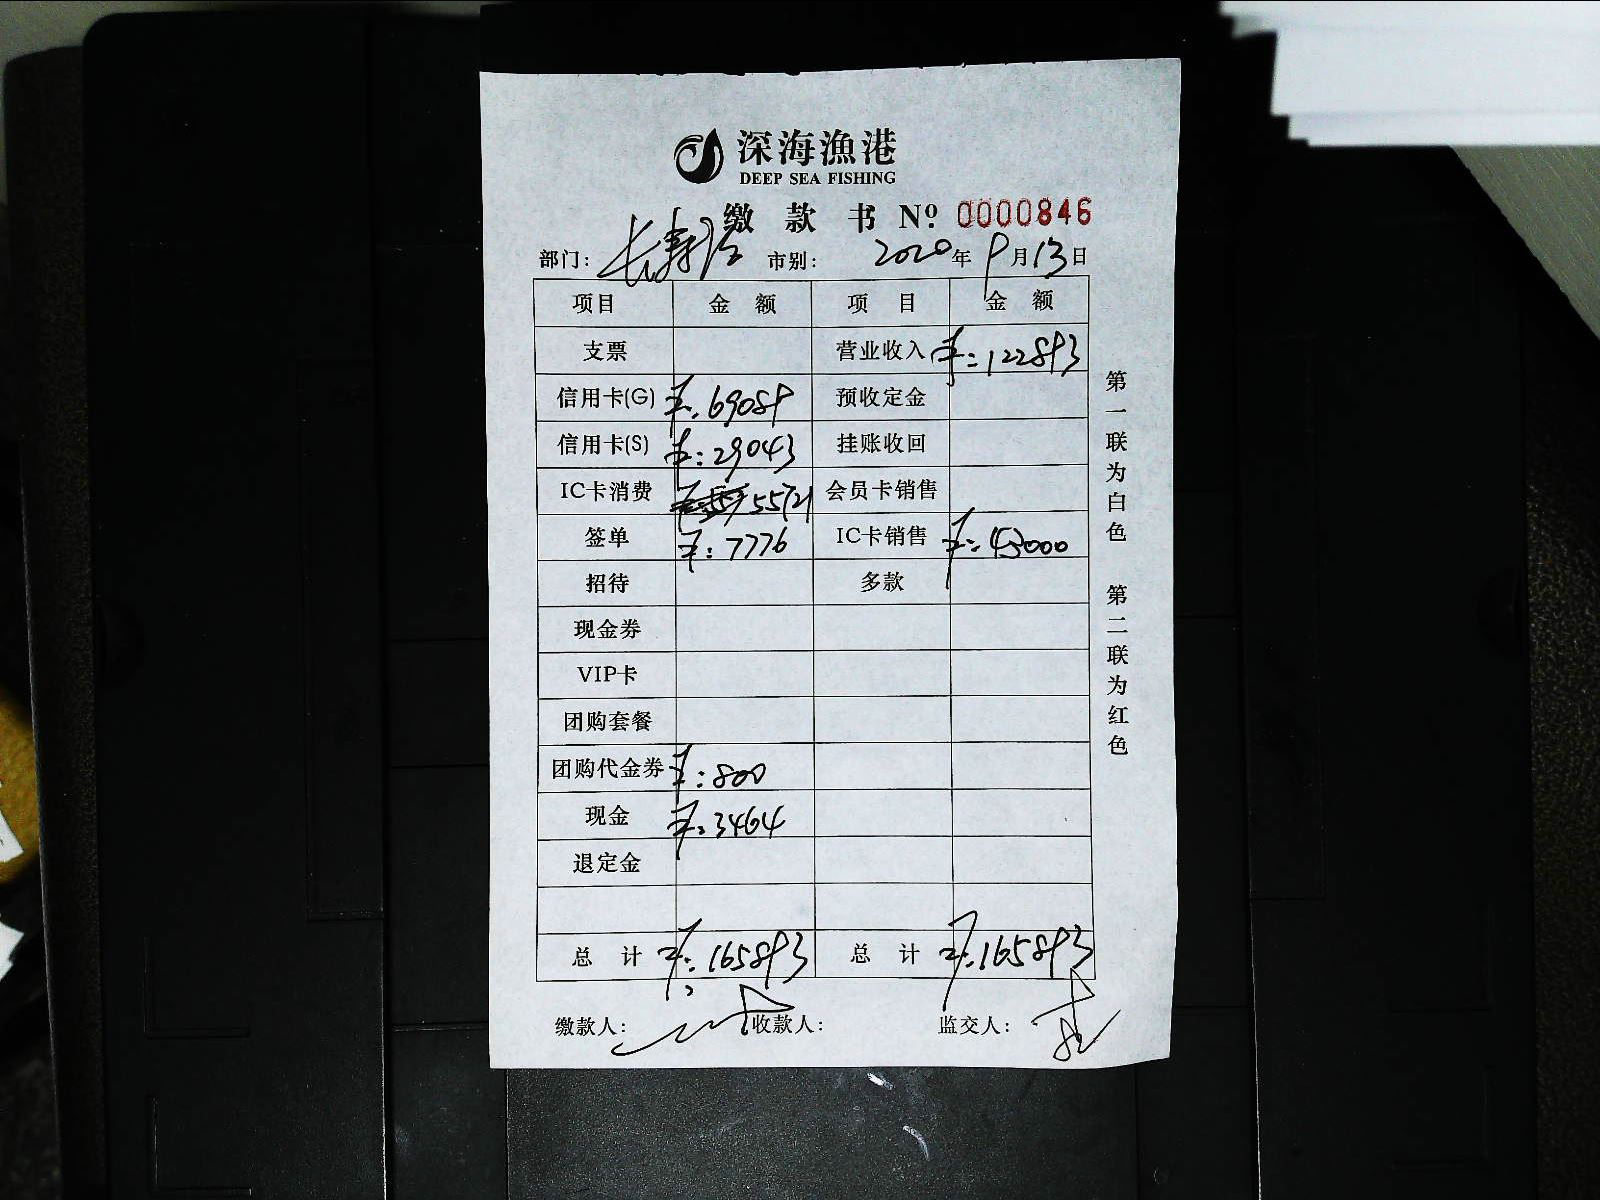 深海渔港
DEEP SEA FISHING
缴款书 Nº 0000846
部门: 长寿路 市别: 2020年9月13日
项目 金额 项目 金额
支票 营业收入 ¥:122893
信用卡(G) ¥:69089 预收定金
信用卡(S) ¥:29043 挂账收回
IC卡消费 55721 会员卡销售
签单 ¥:7776 IC卡销售 ¥:43000
招待 多款
现金券
VIP卡
团购套餐
团购代金券 ¥:800
现金 ¥:3464
退定金
总计 ¥:165893 总计 ¥:165893
缴款人: 收款人: 监交人:
第一联为白色 第二联为红色